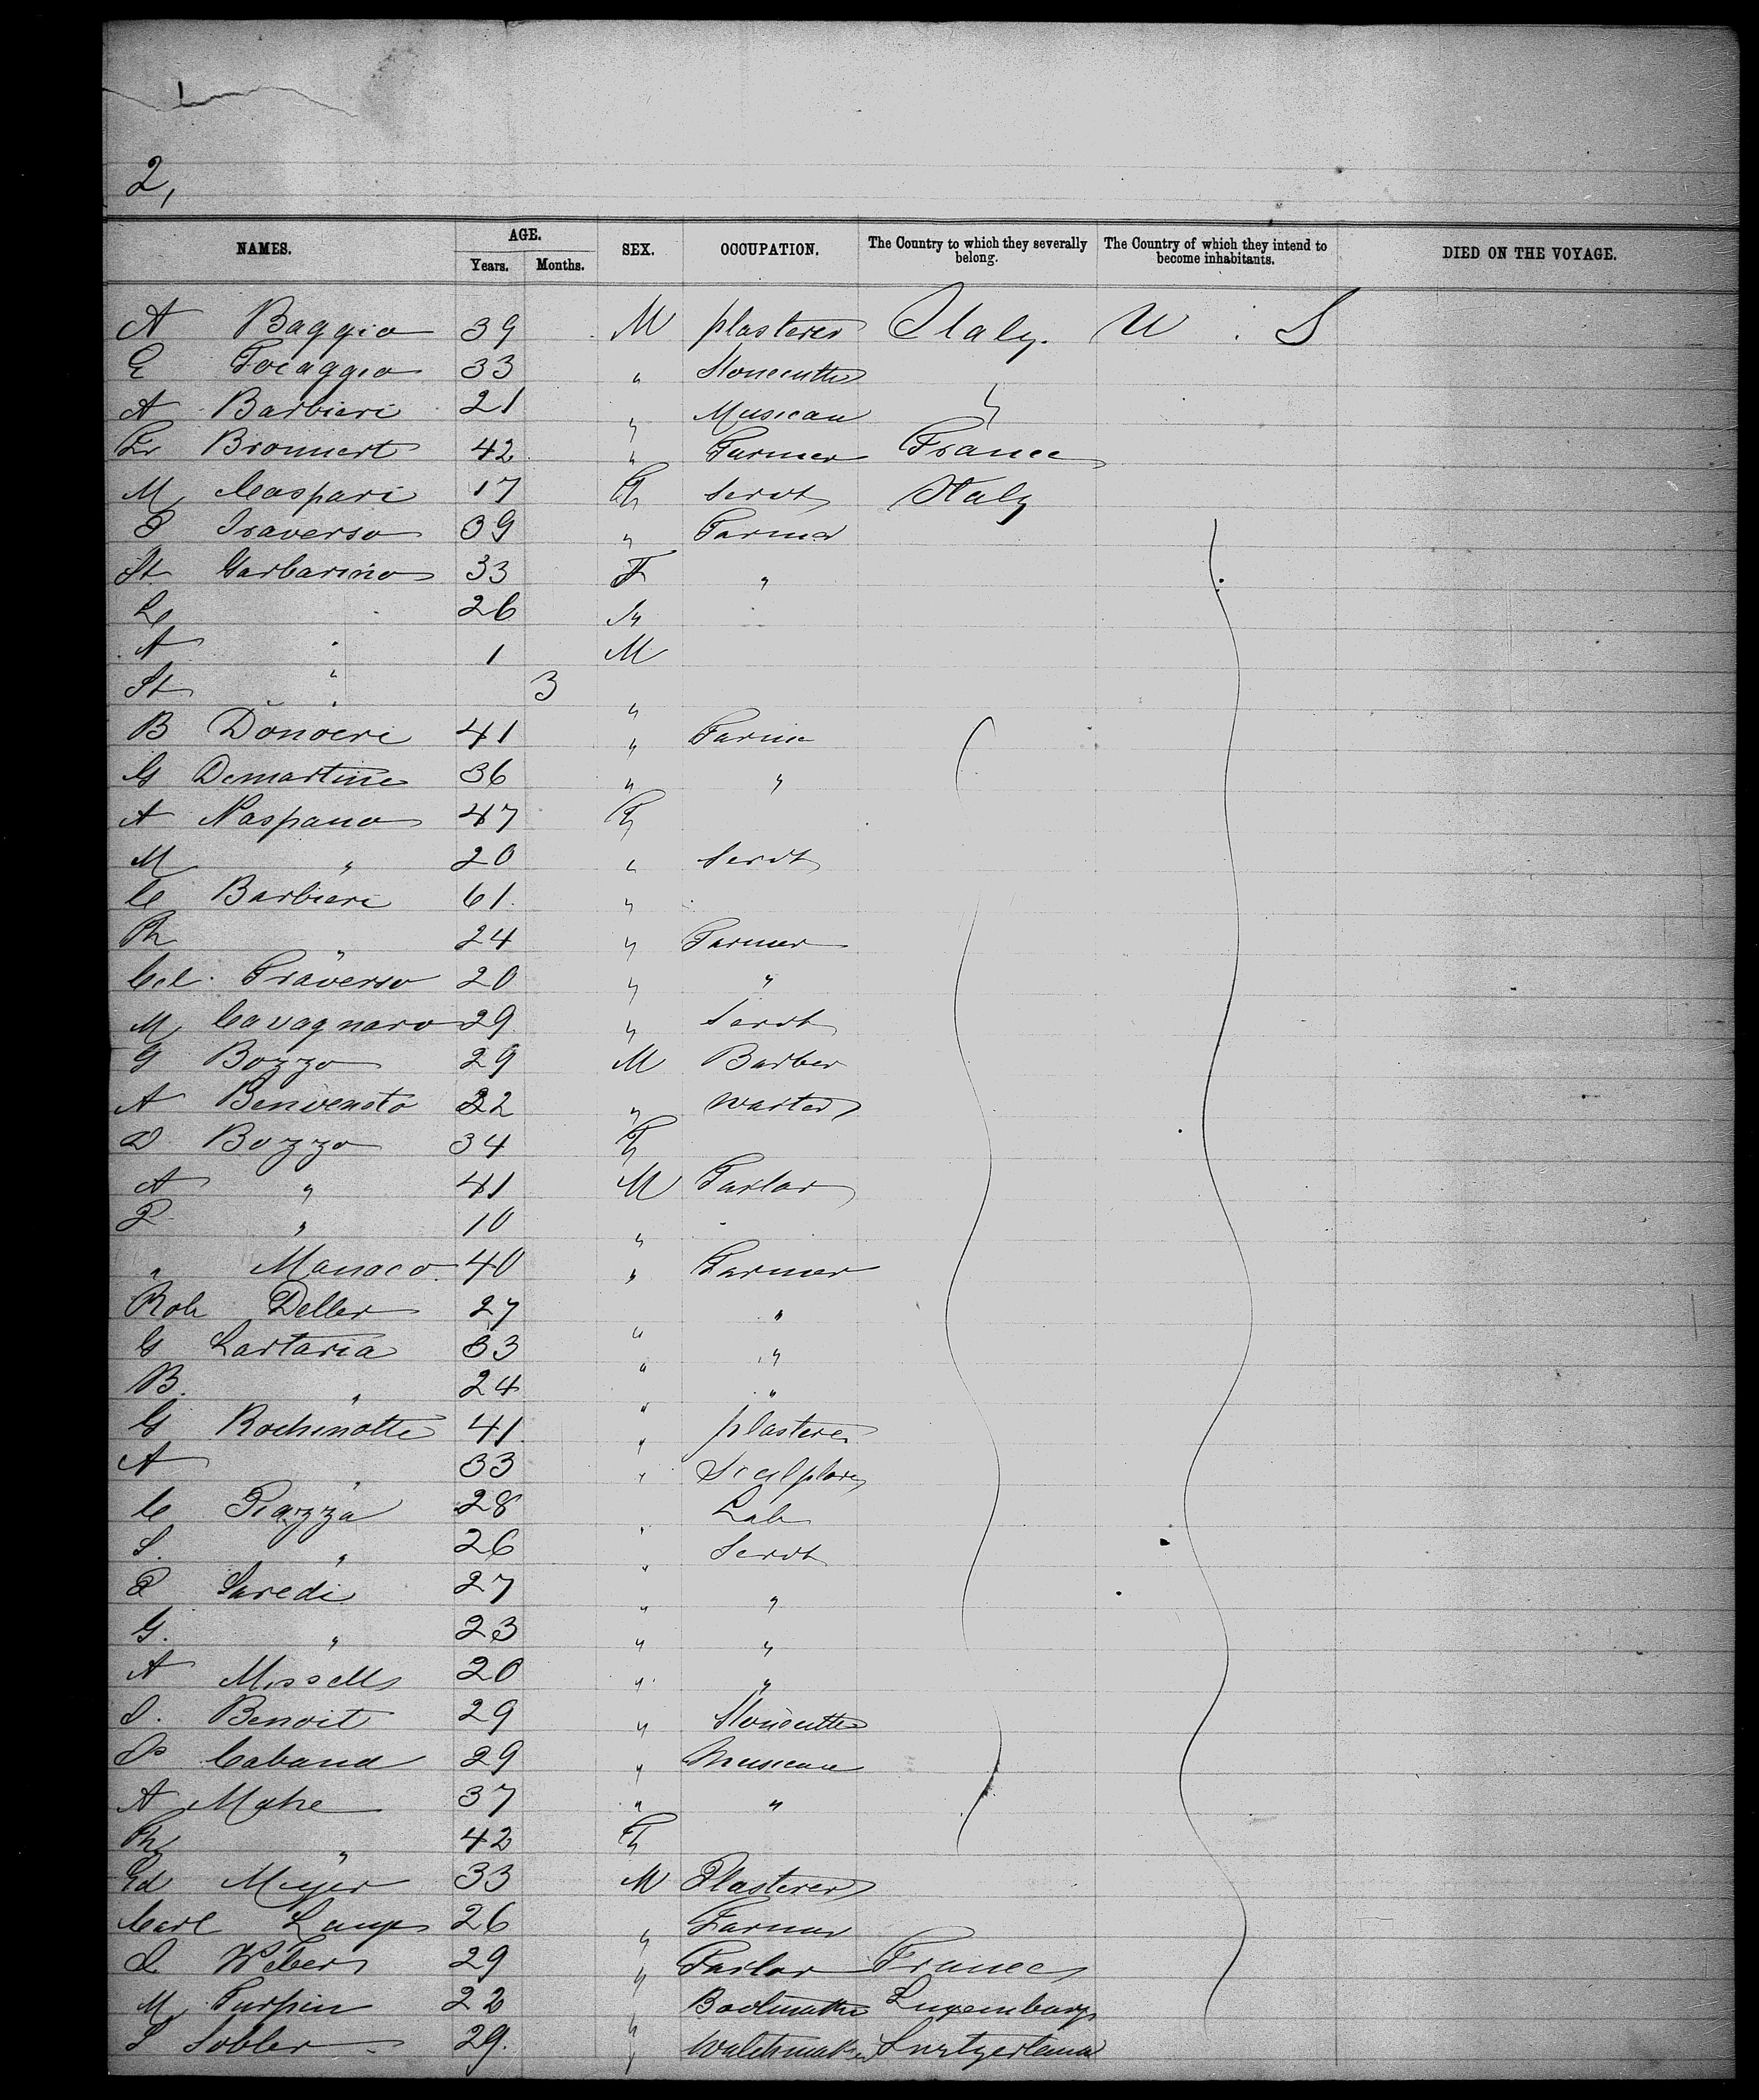 2,
NAMES. AGE. Years. Months. SEX. OCCUPATION. The Country to which they severally belong. The Country of which they intend to become inhabitants. DIED ON THE VOYAGE.
A Baggio 39 M plasterer Italy. U. S
E Focaggio 33 " Stonecutter
A Barbieri 21 " Musican "
Fr Bronnert 42 " Farmer France
M Caspari 17 F Servt Italy
P Traverso 39 " Farmer
St Garbarino 33 F "
Le 26 "
A " 1 M
St " 3 "
B Donoeri 41 " Farmer
G Demartine 36 " "
A Raspano 47 F
M " 20 " Servt
C Barbieri 61 "
Ph " 24 " Farmer
Cel. Traverso 20 " "
M Cavagnaro 29 " Servt
G Bozzo 29 M Barber
A Benvenoto 22 " waiter
D Bozzo 34 F
A " 41 M Tailor
P " 10 "
" Manaco 40 " Farmer
Rob Deller 27 " "
G Lartaria 33 " "
B. " 24 " "
G Rochinotte 41 " plasterer
A " 33 " Sculptor
C Piazza 28 " Lab
S. " 26 " Servt
P Saredi 27 " "
G. " 23 " "
A 20 " "
J. Benoit 29 " Stonecutter
Cabana 29 " Musican
A Mahe 37 " "
Ph " 42 F
Ed Meyer 33 M Plasterer
Carl Lange 26 " Farmer
J. Weber 29 " Tailor France
M Turpin 22 " Luxemburg
S Sobler 29. " Watchmaker Switzerland